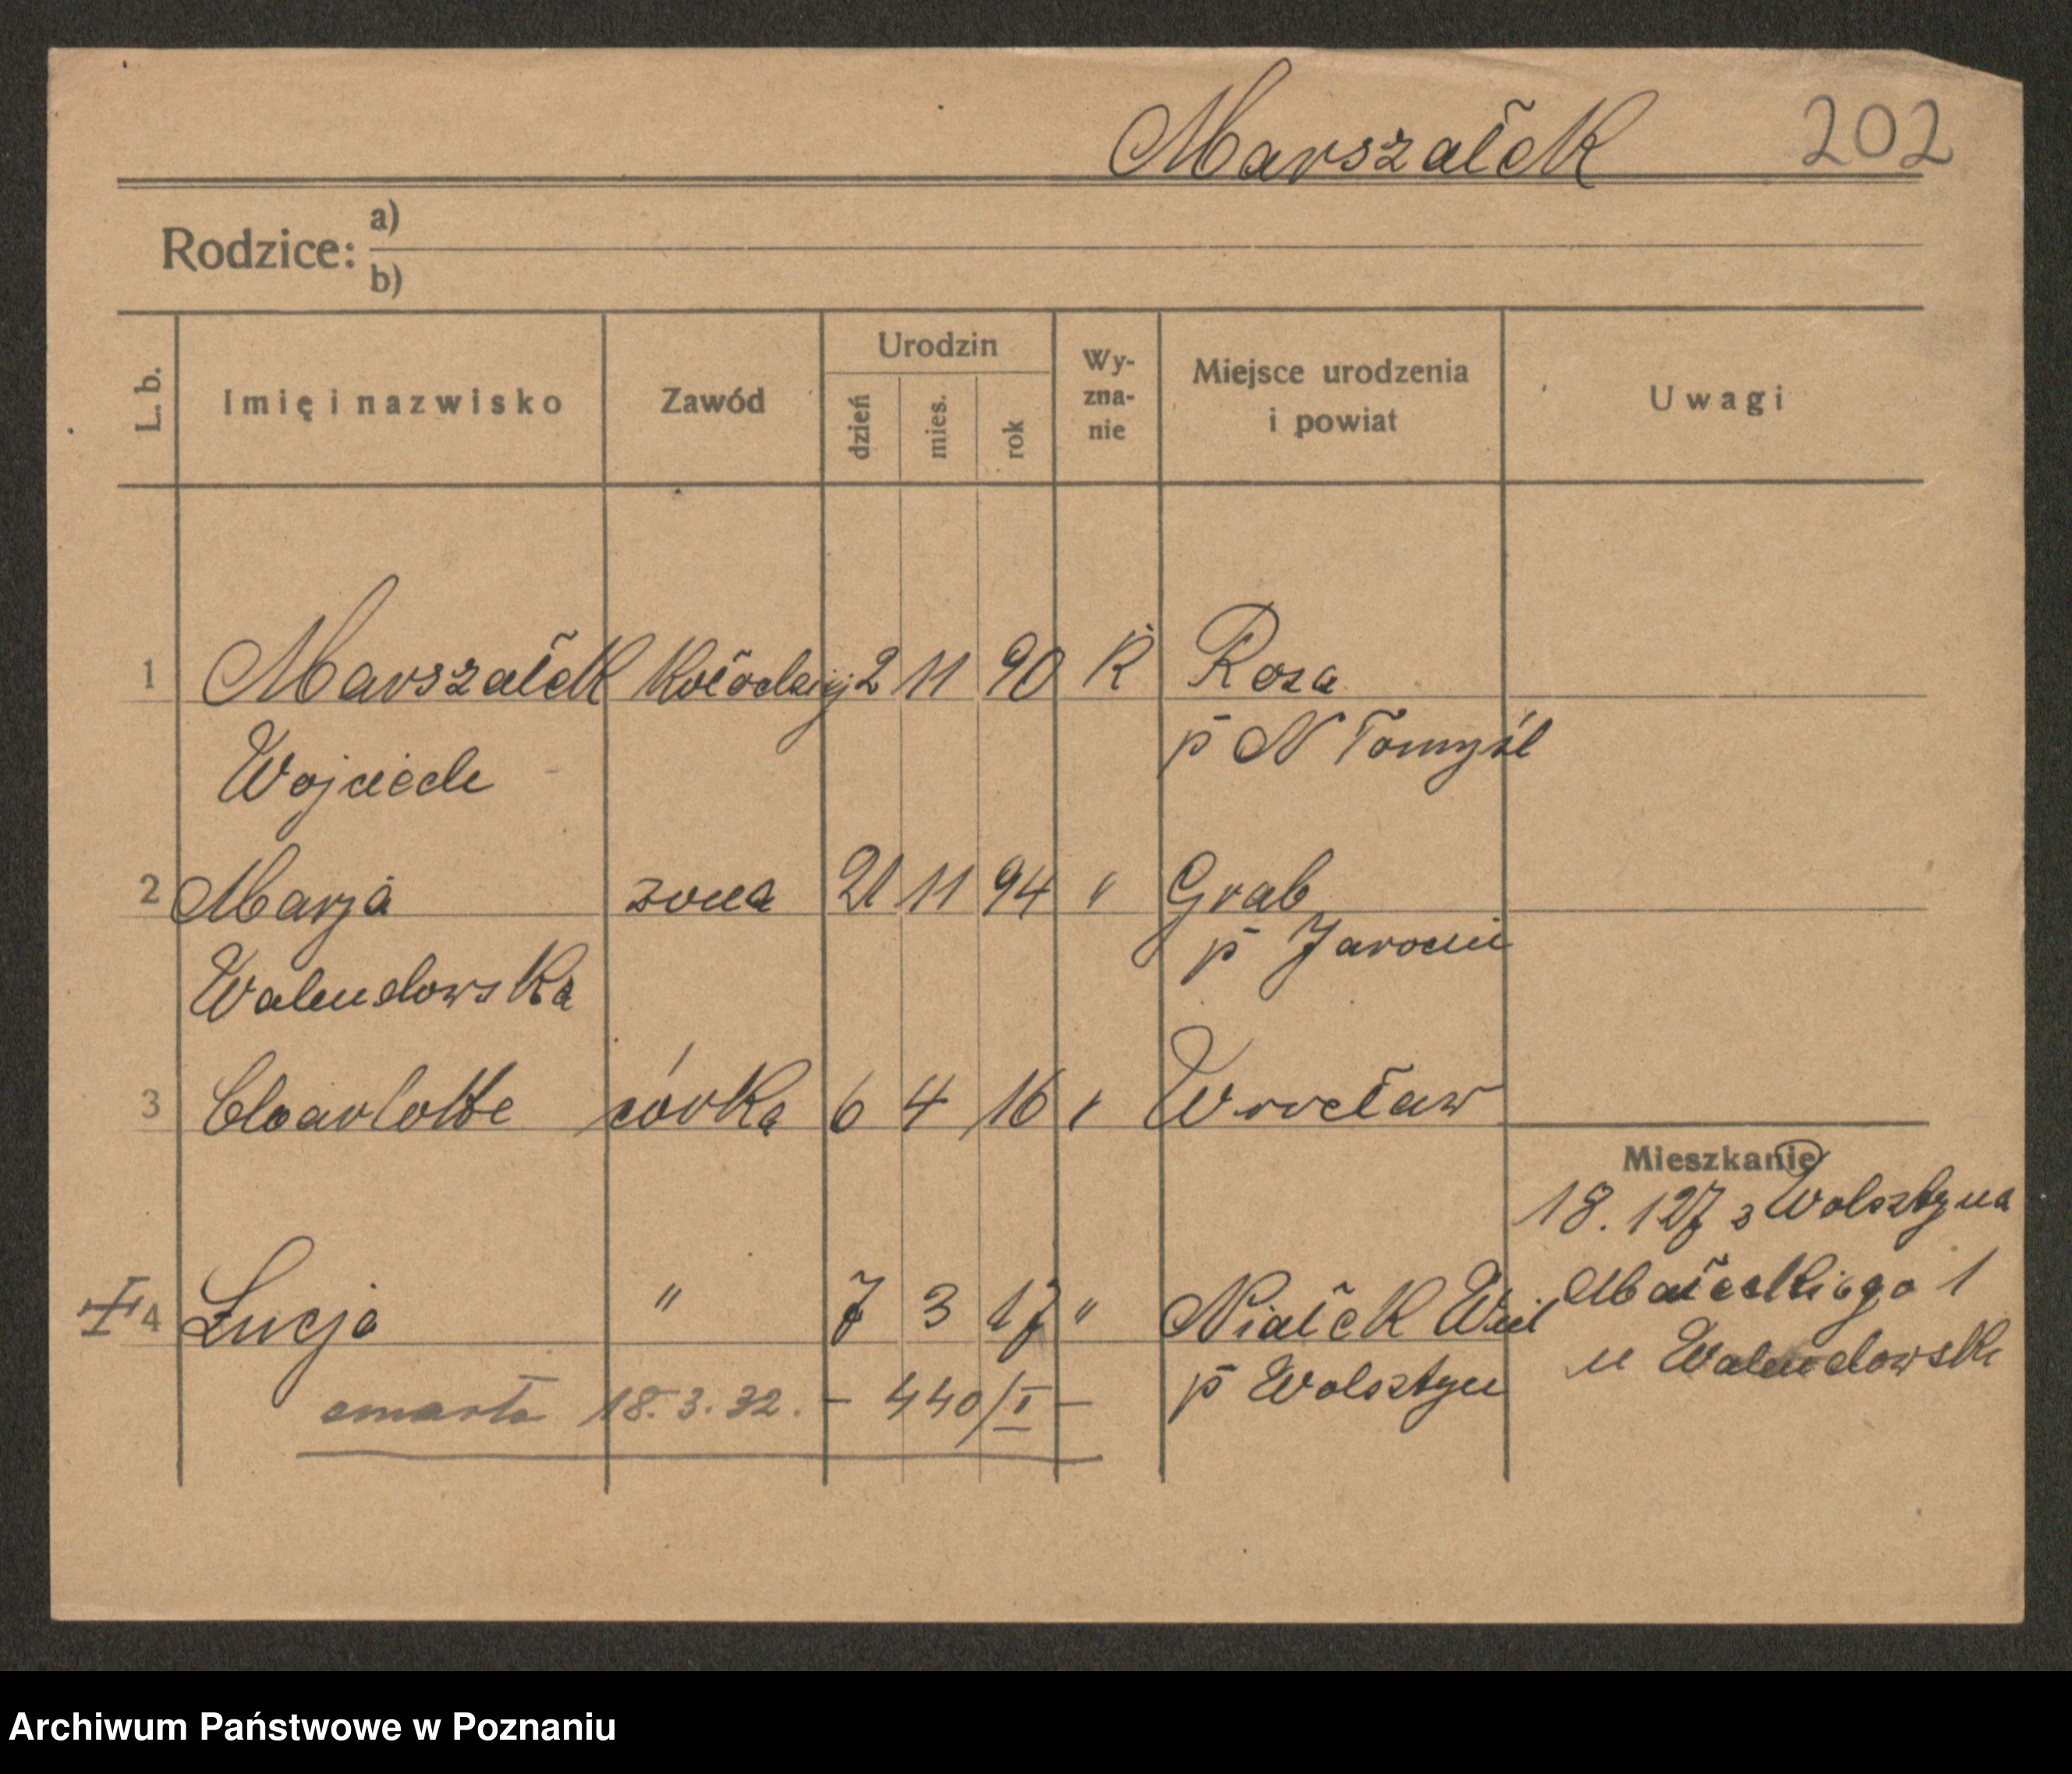 Marszałek 202
Rodzice: a)
b)
L. b. Imię i nazwisko Zawód Urodzin dzień mies. rok Wy-zna-nie Miejsce urodzenia i powiat Uwagi
1 Marszałek Kołodziej 2 11 90 K Roza
Wojciech p N Tomyśl
2 Marja żona 21 11 94 " Grab
Walendowska p Jarocin
3 Charlotte córka 6 4 16 " Wrocław
Mieszkanie
18. 1 27 z Wolsztyna
4 Łucja " 7 3 17 " Niałek Wiel Małeckiego 1
p Wolsztyn u Walendowski
zmarła 18.3.32. - 440/I -
Archiwum Państwowe w Poznaniu